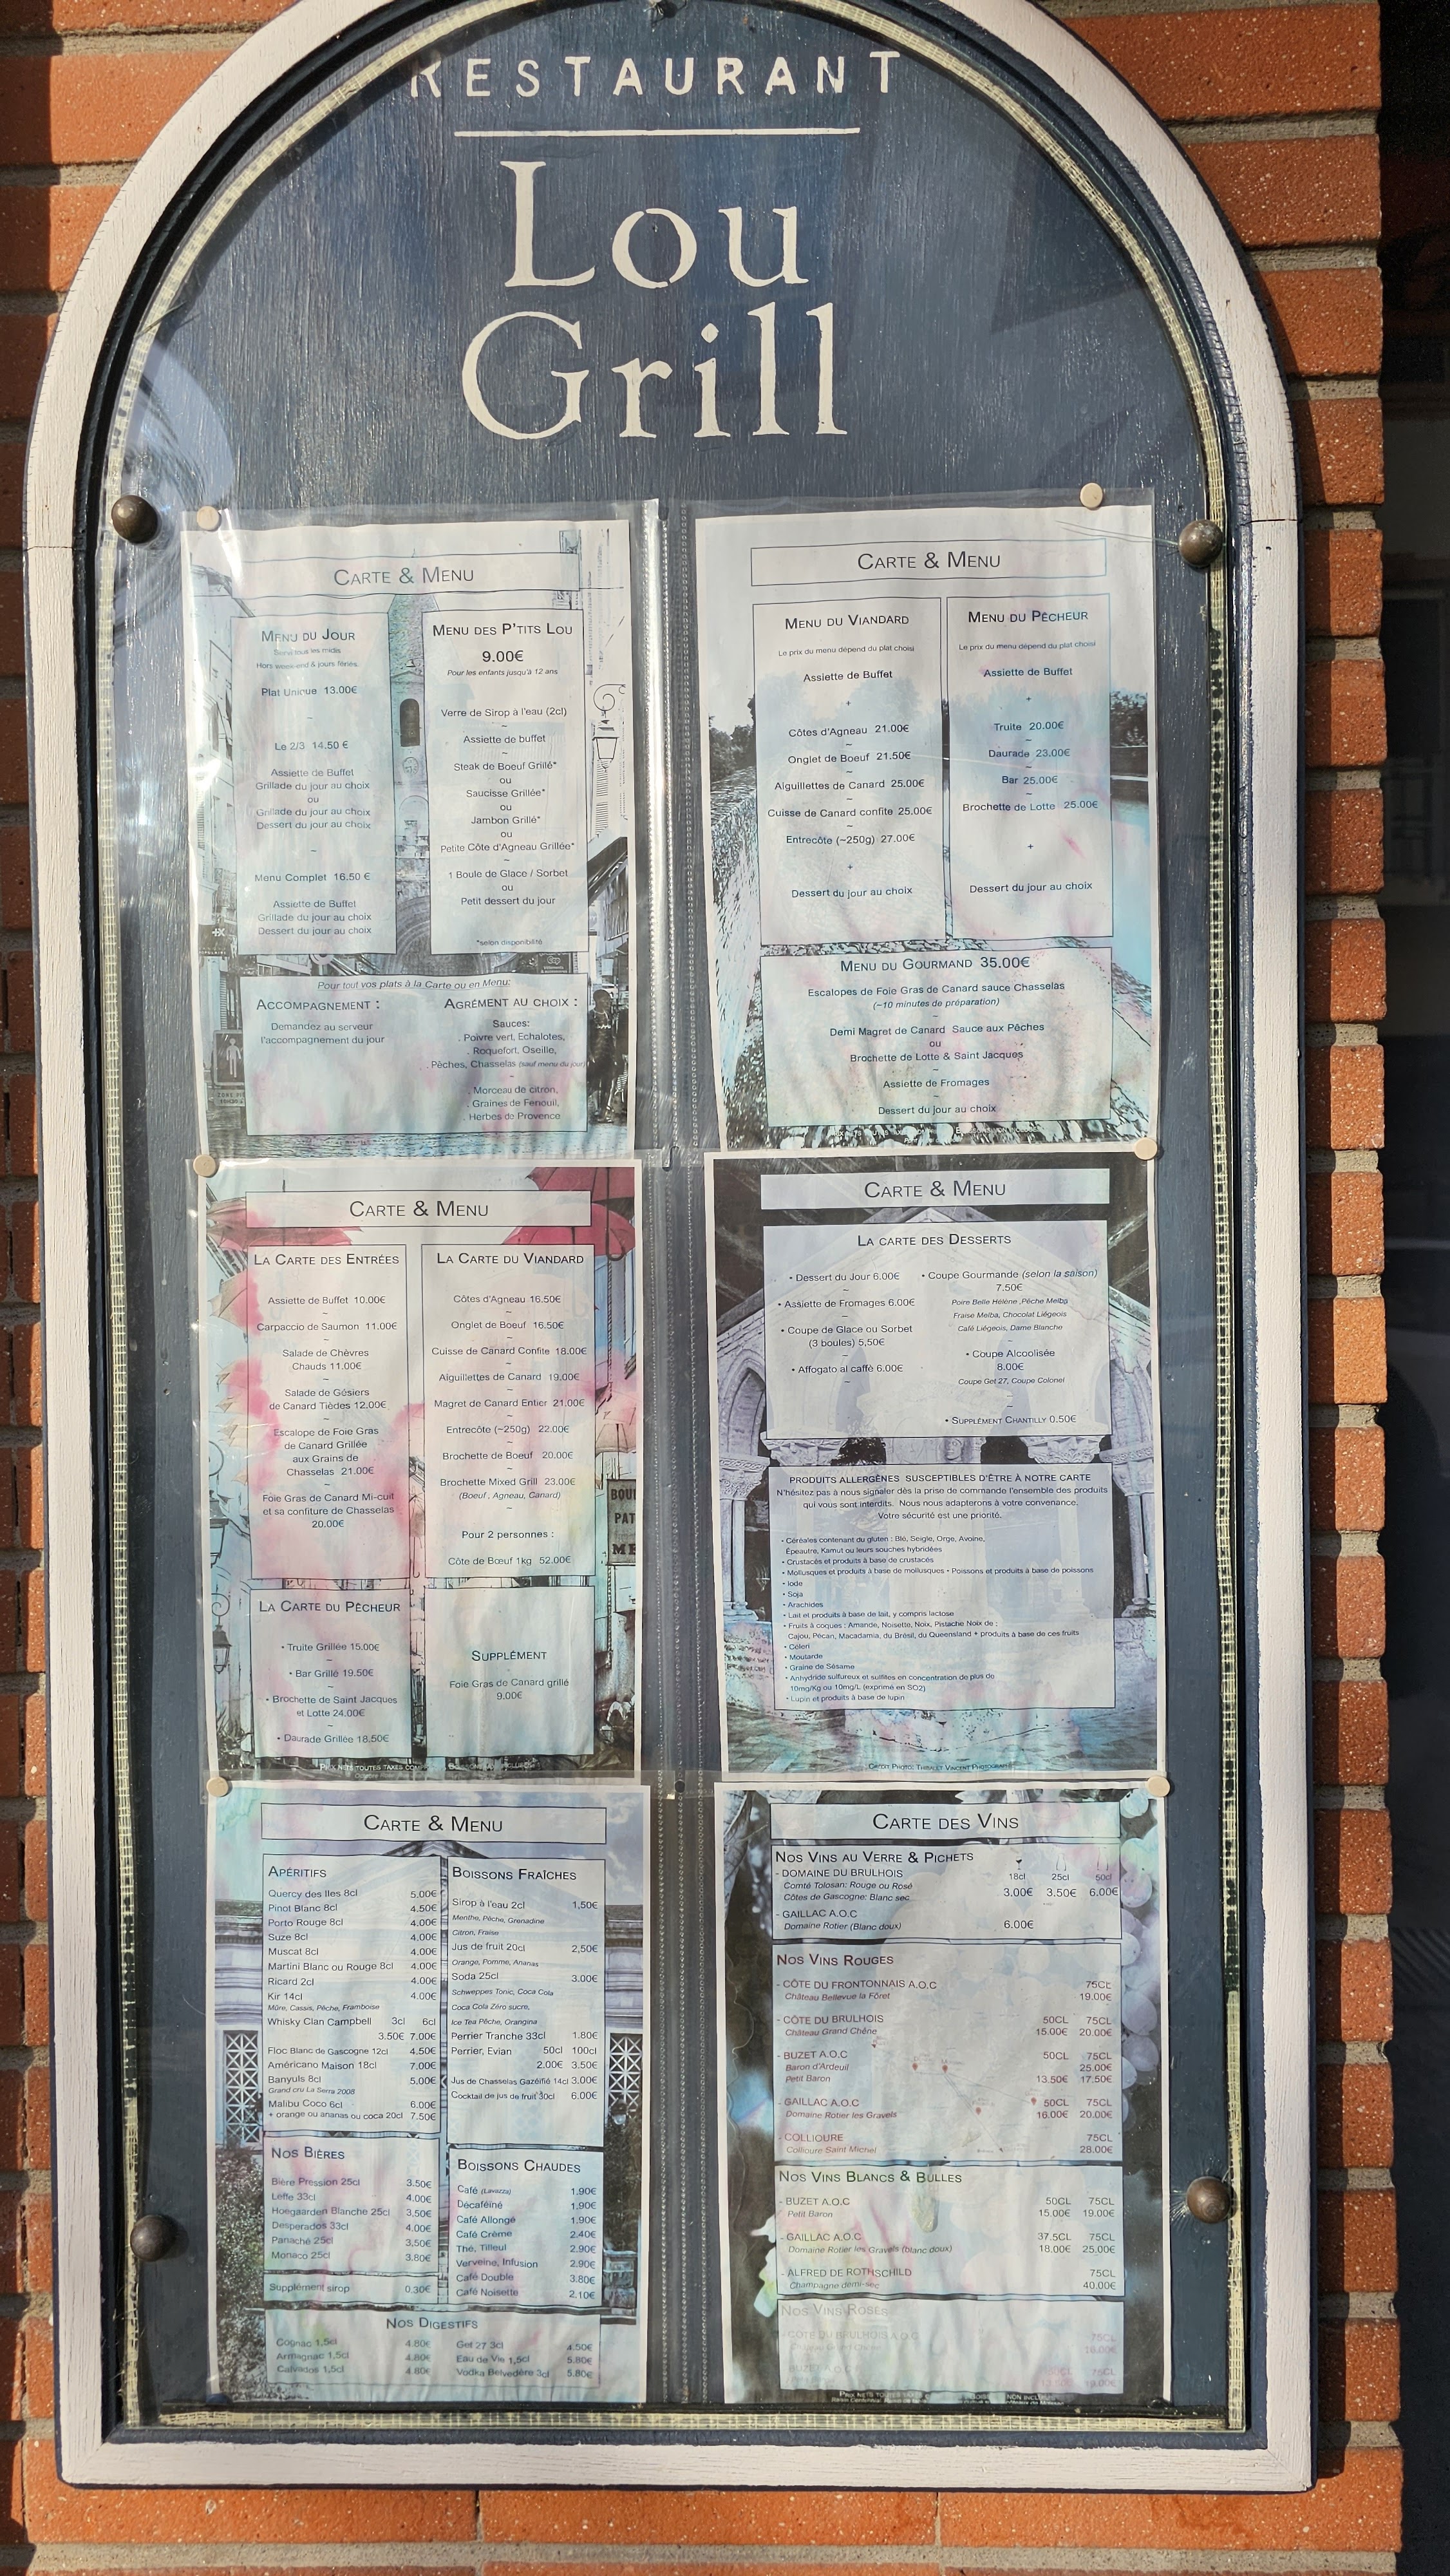 RESTAURANT
Lou
Grill
CARTE & MENU
MENU DU JOUR
Servi tous les midis
Hors week-end & jours fériés
Plat Unique 13.00€
~
Le 2/3 14.50 €
Assiette de Buffet
Grillade du jour au choix
ou
Grillade du jour au choix
Dessert du jour au choix
~
Menu Complet 16.50 €
Assiette de Buffet
Grillade du jour au choix
Dessert du jour au choix
MENU DES P'TITS LOU
9.00€
Pour les enfants jusqu'à 12 ans
Verre de Sirop à l'eau (2cl)
~
Assiette de buffet
~
Steak de Boeuf Grillé*
ou
Saucisse Grillée*
ou
Jambon Grillé*
ou
Petite Côte d'Agneau Grillée*
~
1 Boule de Glace / Sorbet
ou
Petit dessert du jour
*selon disponibilité
Pour tout vos plats à la Carte ou en Menu:
ACCOMPAGNEMENT :
Demandez au serveur
l'accompagnement du jour
AGRÉMENT AU CHOIX :
Sauces:
. Poivre vert, Echalotes,
. Roquefort, Oseille,
. Pêches, Chasselas (sauf menu du jour)
~
. Morceau de citron,
. Graines de Fenouil,
. Herbes de Provence
CARTE & MENU
MENU DU VIANDARD
Le prix du menu dépend du plat choisi
Assiette de Buffet
+
Côtes d'Agneau 21.00€
~
Onglet de Boeuf 21.50€
~
Aiguillettes de Canard 25.00€
~
Cuisse de Canard confite 25.00€
~
Entrecôte (~250g) 27.00€
+
Dessert du jour au choix
MENU DU PÊCHEUR
Le prix du menu dépend du plat choisi
Assiette de Buffet
+
Truite 20.00€
~
Daurade 23.00€
~
Bar 25.00€
~
Brochette de Lotte 25.00€
+
Dessert du jour au choix
MENU DU GOURMAND 35.00€
Escalopes de Foie Gras de Canard sauce Chasselas
(~10 minutes de préparation)
~
Demi Magret de Canard Sauce aux Pêches
ou
Brochette de Lotte & Saint Jacques
~
Assiette de Fromages
~
Dessert du jour au choix
CARTE & MENU
LA CARTE DES ENTRÉES
Assiette de Buffet 10.00€
~
Carpaccio de Saumon 11.00€
~
Salade de Chèvres
Chauds 11.00€
~
Salade de Gésiers
de Canard Tièdes 12.00€
~
Escalope de Foie Gras
de Canard Grillée
aux Grains de
Chasselas 21.00€
~
Foie Gras de Canard Mi-cuit
et sa confiture de Chasselas
20.00€
LA CARTE DU VIANDARD
Côtes d'Agneau 16.50€
~
Onglet de Boeuf 16.50€
~
Cuisse de Canard Confite 18.00€
~
Aiguillettes de Canard 19.00€
~
Magret de Canard Entier 21.00€
~
Entrecôte (~250g) 22.00€
~
Brochette de Boeuf 20.00€
~
Brochette Mixed Grill 23.00€
(Boeuf, Agneau, Canard)
~
Pour 2 personnes :
Côte de Bœuf 1kg 52.00€
LA CARTE DU PÊCHEUR
• Truite Grillée 15.00€
~
• Bar Grillé 19.50€
~
• Brochette de Saint Jacques
et Lotte 24.00€
~
• Daurade Grillée 18.50€
SUPPLÉMENT
Foie Gras de Canard grillé
9.00€
PRIX NETS TOUTES TAXES
CARTE & MENU
LA CARTE DES DESSERTS
• Dessert du Jour 6.00€
~
• Assiette de Fromages 6.00€
~
• Coupe de Glace ou Sorbet
(3 boules) 5,50€
~
• Affogato al caffè 6.00€
~
• Coupe Gourmande (selon la saison)
7.50€
Poire Belle Hélène ,Pêche Melba
Fraise Melba, Chocolat Liégeois
Café Liégeois, Dame Blanche
~
• Coupe Alcoolisée
8.00€
Coupe Get 27, Coupe Colonel
~
• SUPPLÉMENT CHANTILLY 0.50€
PRODUITS ALLERGÈNES SUSCEPTIBLES D'ÊTRE À NOTRE CARTE
N'hésitez pas à nous signaler dès la prise de commande l'ensemble des produits
qui vous sont interdits. Nous nous adapterons à votre convenance.
Votre sécurité est une priorité.
• Céréales contenant du gluten : Blé, Seigle, Orge, Avoine,
Épeautre, Kamut ou leurs souches hybridées
• Crustacés et produits à base de crustacés
• Mollusques et produits à base de mollusques • Poissons et produits à base de poissons
• Iode
• Soja
• Arachides
• Lait et produits à base de lait, y compris lactose
• Fruits à coques : Amande, Noisette, Noix, Pistache Noix de :
Cajou, Pécan, Macadamia, du Brésil, du Queensland + produits à base de ces fruits
• Céleri
• Moutarde
• Graine de Sésame
• Anhydride sulfureux et sulfites en concentration de plus de
10mg/Kg ou 10mg/L (exprimé en SO2)
• Lupin et produits à base de lupin
CRÉDIT PHOTO: THIBAULT VINCENT PHOTOGRAPHE
CARTE & MENU
APÉRITIFS
Quercy des Iles 8cl 5.00€
Pinot Blanc 8cl 4.50€
Porto Rouge 8cl 4.00€
Suze 8cl 4.00€
Muscat 8cl 4.00€
Martini Blanc ou Rouge 8cl 4.00€
Ricard 2cl 4.00€
Kir 14cl 4.00€
Mûre, Cassis, Pêche, Framboise
Whisky Clan Campbell 3cl 6cl
3.50€ 7.00€
Floc Blanc de Gascogne 12cl 4.50€
Américano Maison 18cl 7.00€
Banyuls 8cl 5.00€
Grand cru La Serra 2008
Malibu Coco 6cl 6.00€
+ orange ou ananas ou coca 20cl 7.50€
BOISSONS FRAÎCHES
Sirop à l'eau 2cl 1,50€
Menthe, Pêche, Grenadine
Citron, Fraise
Jus de fruit 20cl 2,50€
Orange, Pomme, Ananas
Soda 25cl 3.00€
Schweppes Tonic, Coca Cola
Coca Cola Zéro sucre,
Ice Tea Pêche, Orangina
Perrier Tranche 33cl 1.80€
Perrier, Evian 50cl 100cl
2.00€ 3.50€
Jus de Chasselas Gazéifié 14cl 3.00€
Cocktail de jus de fruit 30cl 6.00€
NOS BIÈRES
Bière Pression 25cl 3.50€
Leffe 33cl 4.00€
Hoegaarden Blanche 25cl 3,50€
Desperados 33cl 4.00€
Panaché 25cl 3,50€
Monaco 25cl 3.80€
Supplément sirop 0.30€
BOISSONS CHAUDES
Café (Lavazza) 1.90€
Décaféiné 1.90€
Café Allongé 1.90€
Café Crème 2.40€
Thé, Tilleul 2.90€
Verveine, Infusion 2.90€
Café Double 3.80€
Café Noisette 2,10€
NOS DIGESTIFS
Cognac 1,5cl 4.80€
Armagnac 1,5cl 4.80€
Calvados 1,5cl 4.80€
Get 27 3cl 4.50€
Eau de Vie 1,5cl 5.80€
Vodka Belvedère 3cl 5.80€
CARTE DES VINS
NOS VINS AU VERRE & PICHETS
- DOMAINE DU BRULHOIS 18cl 25cl 50cl
Comté Tolosan: Rouge ou Rosé 3.00€ 3.50€ 6.00€
Côtes de Gascogne: Blanc sec
- GAILLAC A.O.C
Domaine Rotier (Blanc doux) 6.00€
NOS VINS ROUGES
- CÔTE DU FRONTONNAIS A.O.C 75CL
Château Bellevue la Fôret 19.00€
- CÔTE DU BRULHOIS 50CL 75CL
Château Grand Chêne 15.00€ 20.00€
- BUZET A.O.C 50CL 75CL
Baron d'Ardeuil 25.00€
Petit Baron 13.50€ 17.50€
- GAILLAC A.O.C 50CL 75CL
Domaine Rotier les Gravels 16.00€ 20.00€
- COLLIOURE 75CL
Collioure Saint Michel 28.00€
NOS VINS BLANCS & BULLES
- BUZET A.O.C 50CL 75CL
Petit Baron 15.00€ 19.00€
- GAILLAC A.O.C 37.5CL 75CL
Domaine Rotier les Gravels (blanc doux) 18.00€ 25.00€
- ALFRED DE ROTHSCHILD 75CL
Champagne demi-sec 40.00€
NOS VINS ROSÉS
- CÔTE DU BRULHOIS A.O.C 75CL
BUZET A.O.C 75CL